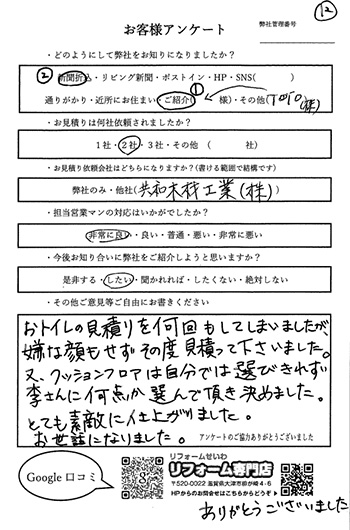 ⑫
お客様アンケート
弊社管理番号
・どのようにして弊社をお知りになりましたか？
② 新聞折込・リビング新聞・ポストイン・HP・SNS( )
①
通りがかり・近所にお住まい・ご紹介( 様)・その他(TOTO(株))
・お見積りは何社依頼されましたか？
1社・2社・3社・その他 ( 社)
・お見積り依頼会社はどちらになりますか？(書ける範囲で結構です)
弊社のみ・他社(共和木材工業(株))
・担当営業マンの対応はいかがでしたか？
非常に良い・良い・普通・悪い・非常に悪い
・今後お知り合いに弊社をご紹介しようと思いますか？
是非する・したい・聞かれれば・したくない・絶対しない
・その他ご意見等ご自由にお書きください
おトイレの見積りを何回もしてしまいましたが、
嫌な顔もせずその度見積って下さいました。
又、クッションフロアは自分では選びきれず
李さんに何点か選んで頂き決めました。
とても素敵に仕上がりました。
お世話になりました。
アンケートのご協力ありがとうございました
Google 口コミ
リフォームせいわ
リフォーム専門店
〒520-0022 滋賀県大津市柳が崎4-6
HPからのお問合せはこちらからどうぞ
ありがとうございました